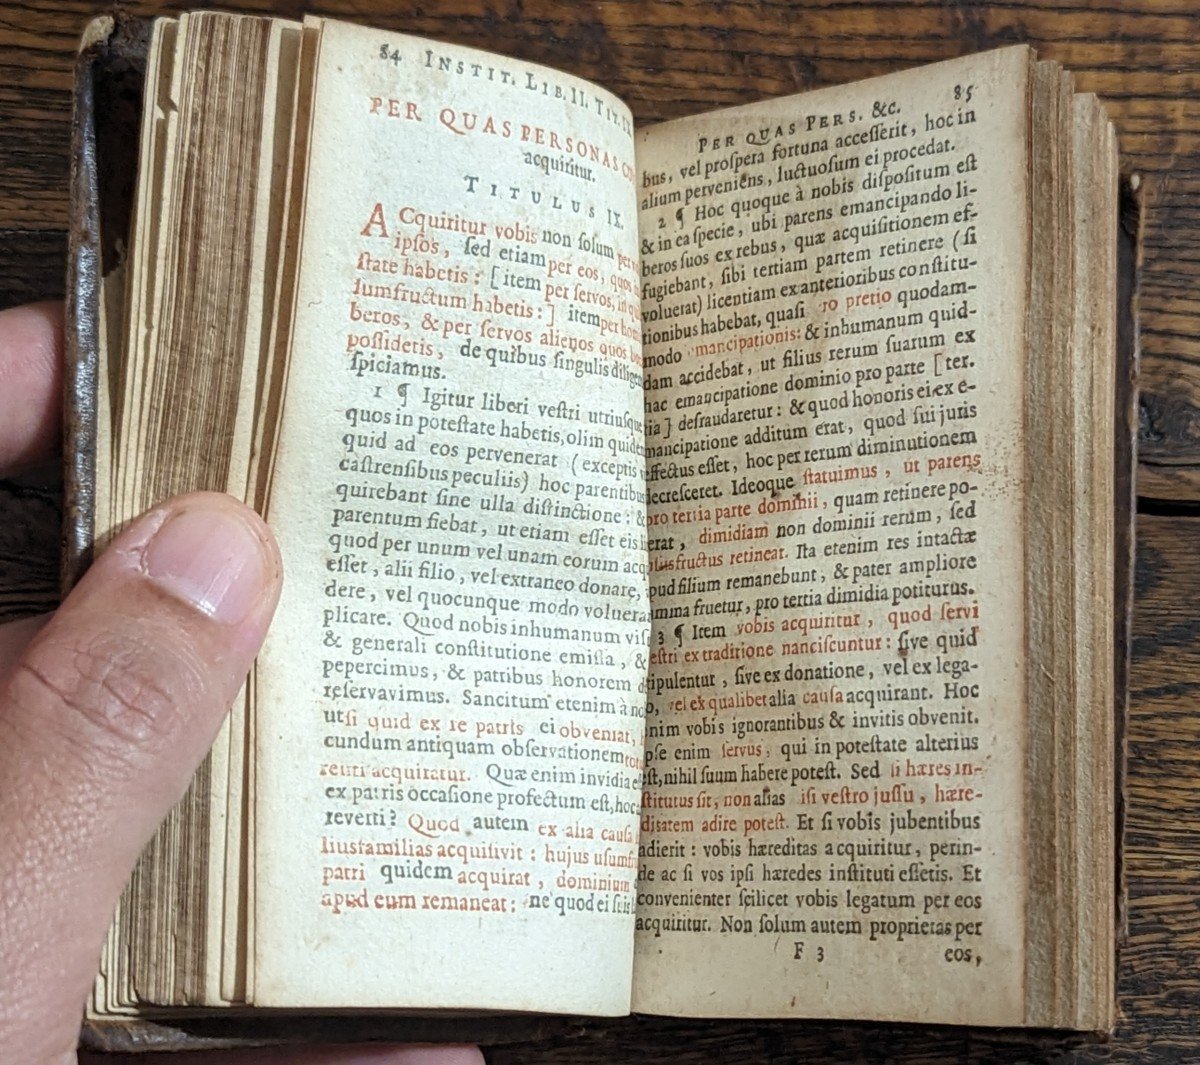 84 INSTIT. LIB. II. TIT. IX
PER QUAS PERSONAS
acquiritur.
TITULUS IX.
ACquiritur vobis non ſolum per v
ipſos, ſed etiam per eos, quos in
ſtate habetis: [item per ſervos, in qui
ſumfructum habetis:] item per hom
beros, & per ſervos alienos quos bona
poſſidetis, de quibus ſingulis diligen
ſpiciamus.
1 ¶ Igitur liberi veſtri utriuſque
quos in poteſtate habetis, olim quidem
quid ad eos pervenerat (exceptis
caſtrenſibus peculiis) hoc parentibus
quirebant ſine ulla diſtinctione: &
parentum fiebat, ut etiam eſſet eis li
quod per unum vel unam eorum acq
eſſet, alii filio, vel extraneo donare,
dere, vel quocunque modo voluera
plicare. Quod nobis inhumanum viſ
& generali conſtitutione emiſſa, &
pepercimus, & patribus honorem d
reſervavimus. Sancitum etenim à no
ut ſi quid ex re patris ei obveniat,
cundum antiquam obſervationem totu
renti acquiratur. Quæ enim invidia e
ex patris occaſione profectum eſt, hoc
reverti? Quod autem ex alia cauſa
liusfamilias acquiſivit: hujus uſumfr
patri quidem acquirat, dominium
apud eum remaneat: ne quod ei ſuis l
PER QUAS PERS. &c. 85
bus, vel proſpera fortuna acceſſerit, hoc in
alium perveniens, luctuoſum ei procedat.
2 ¶ Hoc quoque à nobis diſpoſitum eſt
& in ea ſpecie, ubi parens emancipando li-
beros ſuos ex rebus, quæ acquiſitionem ef-
fugiebant, ſibi tertiam partem retinere (ſi
voluerat) licentiam ex anterioribus conſtitu-
tionibus habebat, quaſi ro pretio quodam-
modo mancipationis: & inhumanum quid-
dam accidebat, ut filius rerum ſuarum ex
hac emancipatione dominio pro parte [ter.
tia] defraudaretur: & quod honoris ei ex e-
mancipatione additum erat, quod ſui juris
effectus eſſet, hoc per rerum diminutionem
decreſceret. Ideoque ſtatuimus, ut parens
pro tertia parte dominii, quam retinere po-
erat, dimidiam non dominii rerum, ſed
uſusfructus retineat. Ita etenim res intactæ
pud filium remanebunt, & pater ampliore
mina fruetur, pro tertia dimidia potiturus.
3 ¶ Item vobis acquiritur, quod ſervi
eſtri ex traditione nanciſcuntur: ſive quid
tipulentur, ſive ex donatione, vel ex lega-
o, vel ex qualibet alia cauſa acquirant. Hoc
nim vobis ignorantibus & invitis obvenit.
pſe enim ſervus, qui in poteſtate alterius
eſt, nihil ſuum habere poteſt. Sed ſi hæres in-
ſtitutus ſit, non alias iſi veſtro juſſu, hære-
ditatem adire poteſt. Et ſi vobis jubentibus
adierit: vobis hæreditas acquiritur, perin-
de ac ſi vos ipſi hæredes inſtituti eſſetis. Et
convenienter ſcilicet vobis legatum per eos
acquiritur. Non ſolum autem proprietas per
F 3 eos,